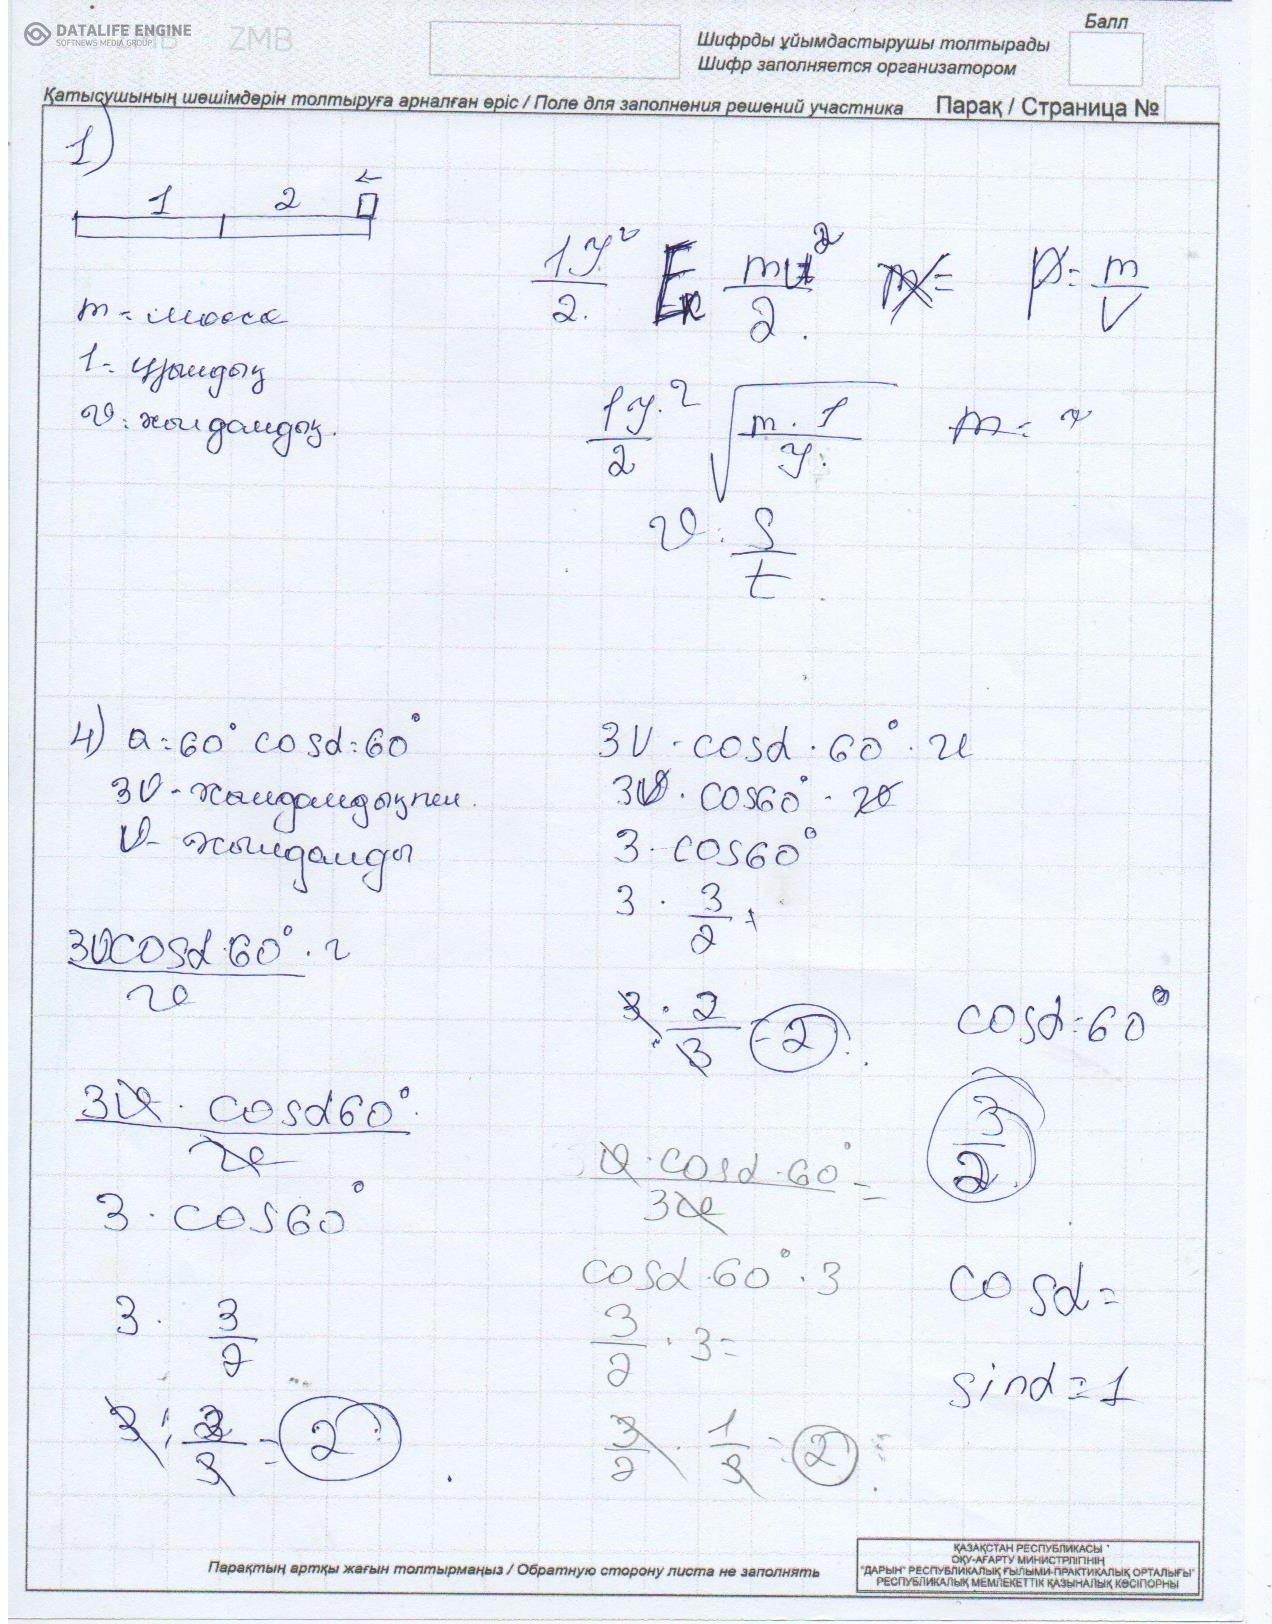 DATALIFE ENGINE
SOFTNEWS MEDIA GROUP
ZMB
Балл
Шифрды ұйымдастырушы толтырады
Шифр заполняется организатором
Қатысушының шешімдерін толтыруға арналған өріс / Поле для заполнения решений участника
Парақ / Страница №
1)
1 2 ←
m = масса
1 = ұзындық
υ = жылдамдық.
1У²/2. Eк mu²/2. p = m/V
1У·²/2 √(m · 1/У.) m =
υ = S/t
4) a = 60° cosα = 60°
3υ - жылдамдықпен.
υ - жылдамды
3υcosα·60° · г/υ
3υ · cosα60°/υ
3 · cos60°
3 · 3/2
3 : 2/3 = 2
3υ · cosα · 60° · υ
3υ · cos60° · υ
3 · cos60°
3 · 3/2
3 · 2/3 = 2
υ · cosα · 60°/3υ =
cosα · 60° · 3
3/2 · 3 =
3/2 · 1/3 = 2
cosα = 60°
3/2
cosα =
sinα = 1
Парақтың артқы жағын толтырмаңыз / Обратную сторону листа не заполнять
ҚАЗАҚСТАН РЕСПУБЛИКАСЫ
ОҚУ-АҒАРТУ МИНИСТРЛІГІНІҢ
"ДАРЫН" РЕСПУБЛИКАЛЫҚ ҒЫЛЫМИ-ПРАКТИКАЛЫҚ ОРТАЛЫҒЫ"
РЕСПУБЛИКАЛЫҚ МЕМЛЕКЕТТІК ҚАЗЫНАЛЫҚ КӘСІПОРНЫ